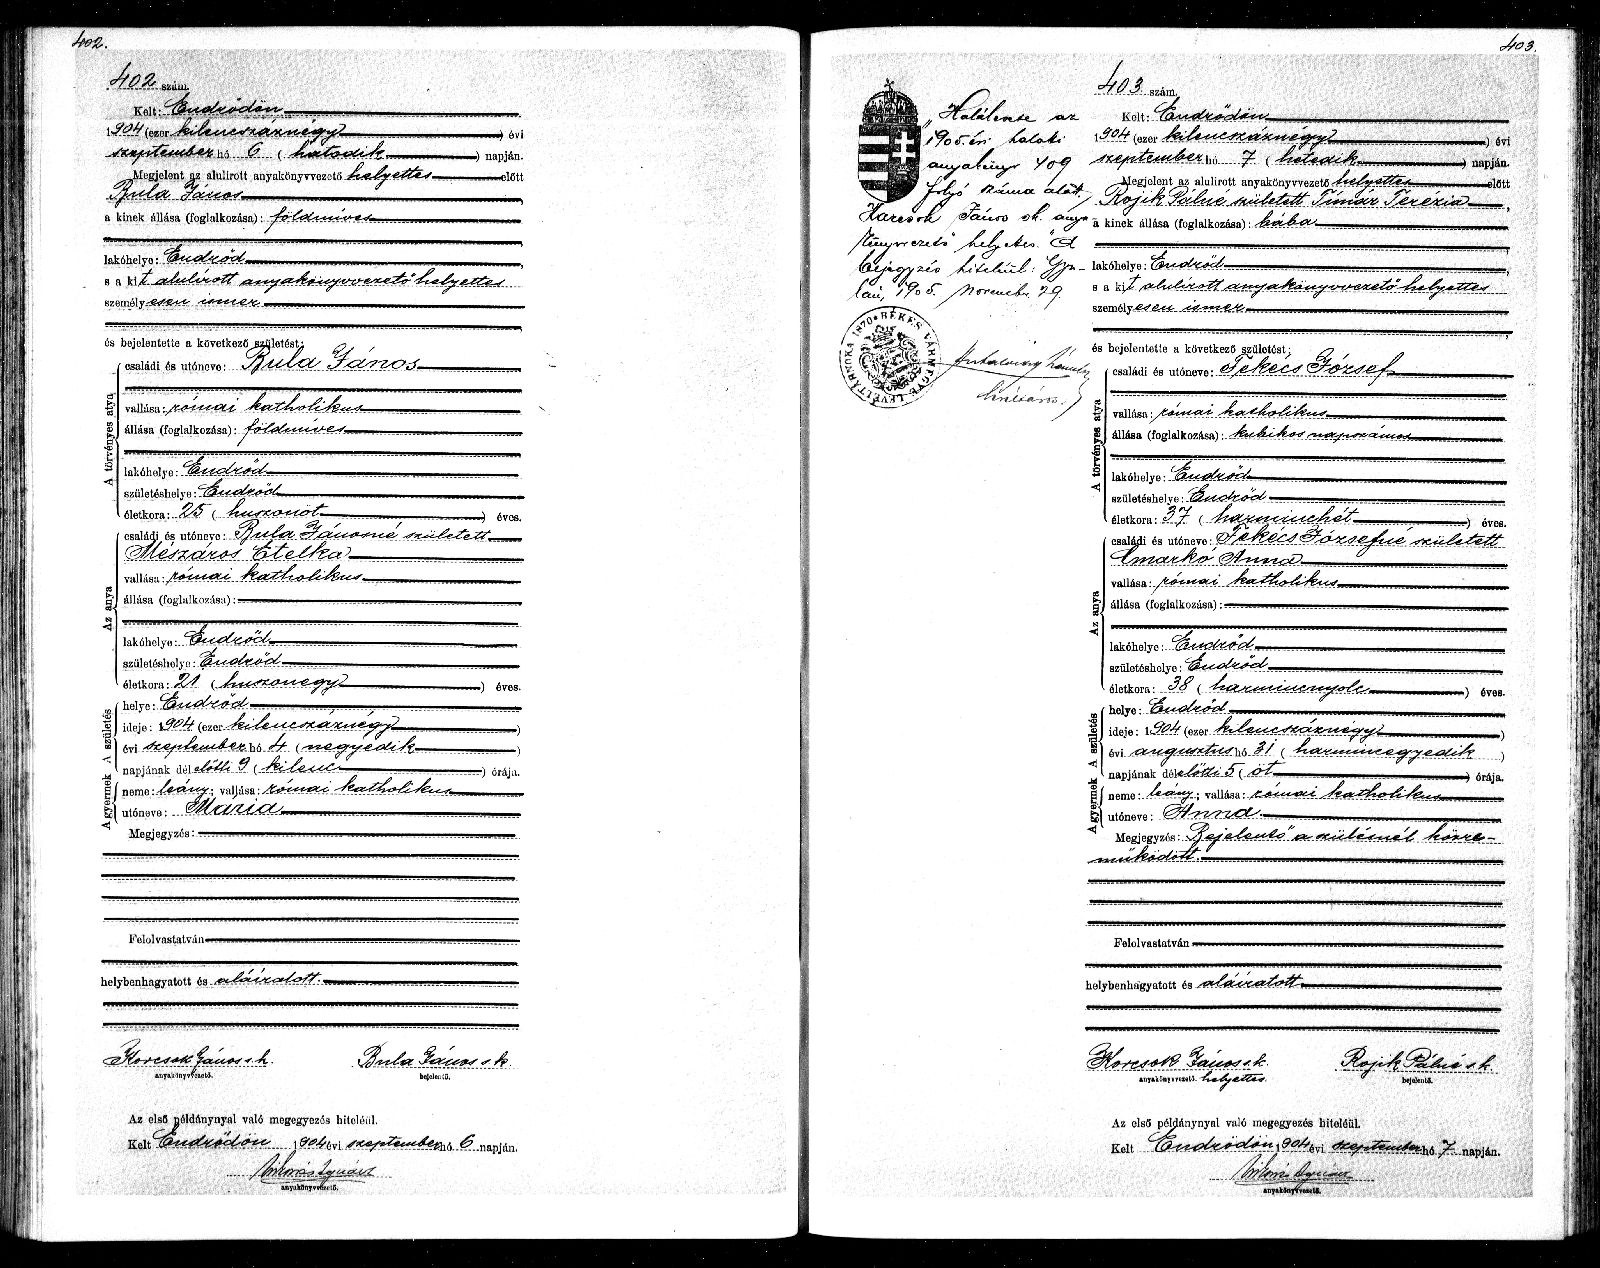 402.
402 szám.
Kelt: Endrődön
1904 (ezer kilencszáznégy) évi
szeptember hó 6 (hatodik) napján.
Megjelent az alulirott anyakönyvvezető helyettes előtt
Bula János
a kinek állása (foglalkozása): földmíves
lakóhelye: Endrőd
s a kit alulírott anyakönyvvezető helyettes
személyesen ismer
és bejelentette a következő születést:
A törvényes atya
családi és utóneve: Bula János
vallása: római katholikus
állása (foglalkozása): földmíves
lakóhelye: Endrőd
születéshelye: Endrőd
életkora: 25 (huszonöt) éves.
Az anya
családi és utóneve: Bula Jánosné született
Mészáros Etelka
vallása: római katholikus
állása (foglalkozása):
lakóhelye: Endrőd
születéshelye: Endrőd
életkora: 21 (huszonegy) éves.
A születés
helye: Endrőd
ideje: 1904 (ezer kilencszáznégy)
évi szeptember hó 4 (negyedik)
napjának dél előtti 9 (kilenc) órája.
A gyermek
neme: leány; vallása: római katholikus
utóneve: Mária
Megjegyzés:
Felolvastatván
helybenhagyatott és aláíratott.
Korcsok János s. k.
anyakönyvvezető.
Bula János s. k.
bejelentő.
Az első példánynyal való megegyezés hiteléül.
Kelt Endrődön 1904 évi szeptember hó 6 napján.
anyakönyvvezető.
403.
„Halálesete az
1905. évi halotti
anyakönyv 409
folyó száma alatt,
Korcsok János sk. anya-
könyvvezető helyettes." A
bejegyzés hiteléül: Gyu-
lán, 1905. novembr. 29.
BÉKÉS VÁRMEGYE LEVÉLTÁRNOKA 1870
403 szám.
Kelt: Endrődön
1904 (ezer kilencszáznégy) évi
szeptember hó 7 (hetedik) napján.
Megjelent az alulirott anyakönyvvezető helyettes előtt
Rojik Pálné született Tímár Terézia,
a kinek állása (foglalkozása): bába
lakóhelye: Endrőd
s a kit alulírott anyakönyvvezető helyettes
személyesen ismer
és bejelentette a következő születést:
A törvényes atya
családi és utóneve: Fekécs József
vallása: római katholikus
állása (foglalkozása): kubikos napszámos
lakóhelye: Endrőd
születéshelye: Endrőd
életkora: 37 (harminchét) éves.
Az anya
családi és utóneve: Fekécs Józsefné született
Smarkó Anna
vallása: római katholikus
állása (foglalkozása):
lakóhelye: Endrőd
születéshelye: Endrőd
életkora: 38 (harmincnyolc) éves.
A születés
helye: Endrőd
ideje: 1904 (ezer kilencszáznégy)
évi augusztus hó 31 (harmincegyedik)
napjának dél előtti 5 (öt) órája.
A gyermek
neme: leány; vallása: római katholikus
utóneve: Anna
Megjegyzés: Bejelentő a szülésnél közre-
működött.
Felolvastatván
helybenhagyatott és aláíratott
Korcsok János s. k.
anyakönyvvezető. helyettes.
Rojik Pálné s. k.
bejelentő.
Az első példánynyal való megegyezés hiteléül.
Kelt Endrődön 1904 évi szeptember hó 7 napján.
anyakönyvvezető.